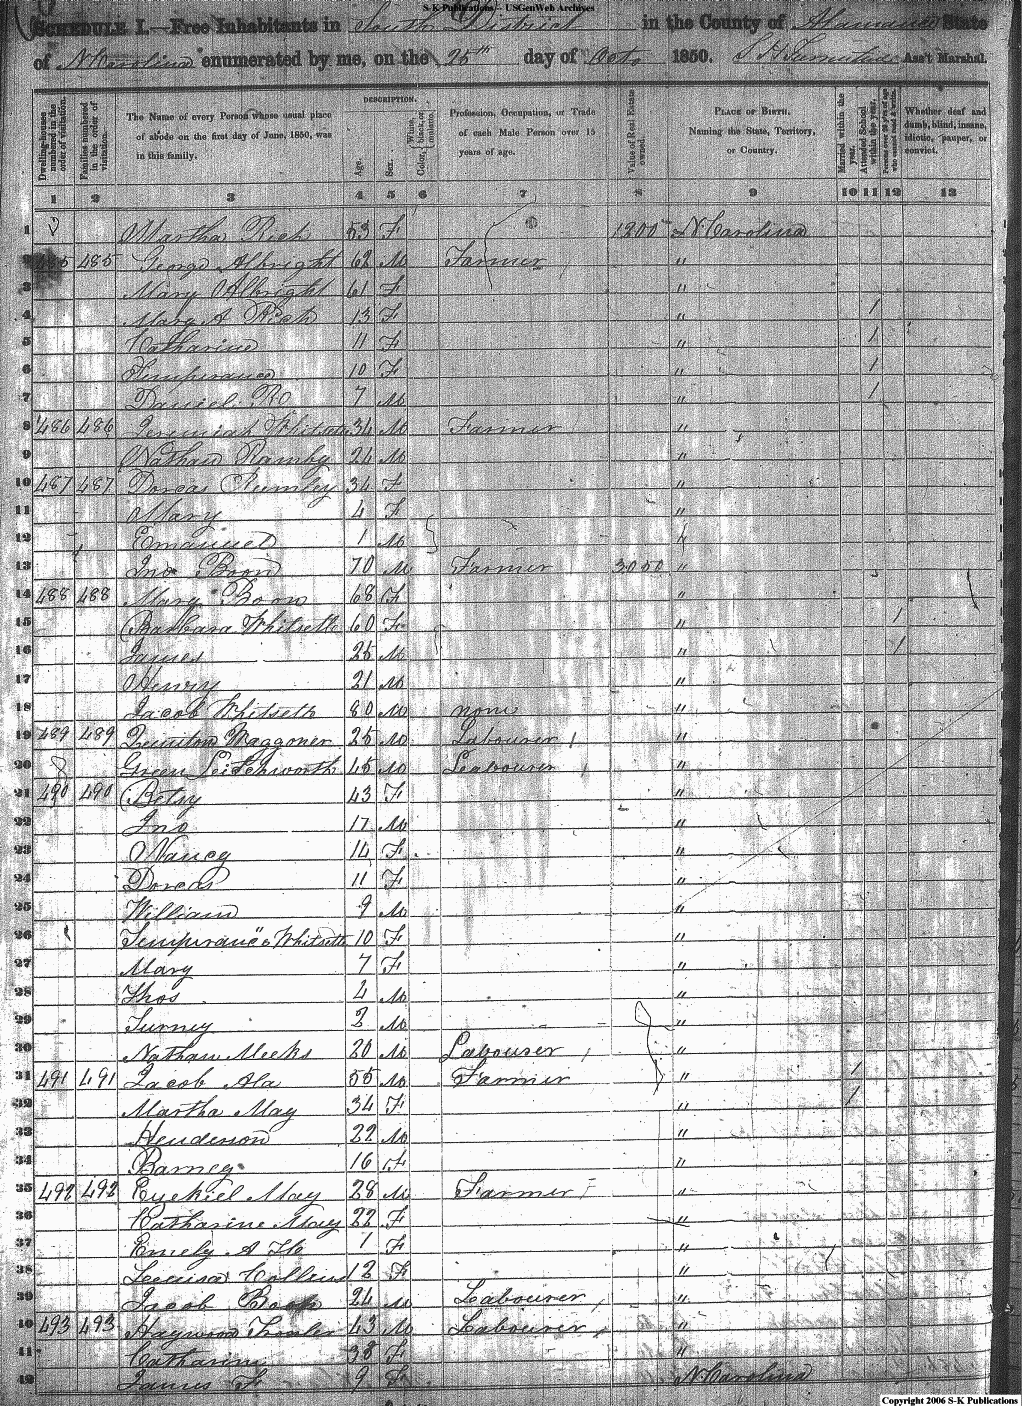 S-K Publications - USGenWeb Archives
SCHEDULE I.—Free Inhabitants in South District in the County of Alamance State
of N Carolina enumerated by me, on the 25th day of Octo 1850. Ass't Marshal.
Dwelling-houses numbered in the order of visitation.
Families numbered in the order of visitation.
The Name of every Person whose usual place of abode on the first day of June, 1850, was in this family.
DESCRIPTION.
Age.
Sex.
White, black, or mulatto.
Color,
Profession, Occupation, or Trade of each Male Person over 15 years of age.
Value of Real Estate owned.
PLACE OF BIRTH.
Naming the State, Territory, or Country.
Married within the year.
Attended School within the year.
Persons over 20 years of age who cannot read & write.
Whether deaf and dumb, blind, insane, idiotic, pauper, or convict.
1 2 3 4 5 6 7 8 9 10 11 12 13
1 Martha Rich 53 F 1200 N. Carolina
2 485 485 George Albright 62 M Farmer "
3 Mary Albright 61 F "
4 Mary A Rich 13 F " 1
5 Catharine 11 F " 1
6 Temperance 10 F " 1
7 Daniel 7 M " 1
8 486 486 Jeremiah 34 M Farmer "
9 Nathan 24 M "
10 487 487 Dorcas Rumley 34 F "
11 Mary 4 F "
12 Emanuel 1 M "
13 Jno Boon 70 M Farmer 3050 "
14 488 488 Mary Boon 68 F "
15 Barbara Whitsett 60 F " 1
16 James 25 M " 1
17 Henry 21 M "
18 Jacob Whitseth 80 M none "
19 489 489 Waggoner 25 M Labourer "
20 Green 45 M Labourer "
21 490 490 Betsy 43 F "
22 Jno 17 M "
23 Nancy 14 F "
24 Dorcas 11 F "
25 William 9 M "
26 Temperance Whitsett 10 F "
27 Mary 7 F "
28 Thos 4 M "
29 Turney 2 M "
30 Nathan Meeks 20 M Labourer "
31 491 491 Jacob Ala 55 M Farmer " 1
32 Martha May 34 F " 1
33 Henderson 22 M "
34 Barney 16 F "
35 492 492 Ezekiel May 28 M Farmer "
36 Catharine May 22 F "
37 Emely A 1 F "
38 Louisa Collins 12 F "
39 Jacob 24 M Labourer "
40 493 493 Haywood 43 M Labourer "
41 Catharine 38 F "
42 James F 9 F N. Carolina
Copyright 2006 S-K Publications